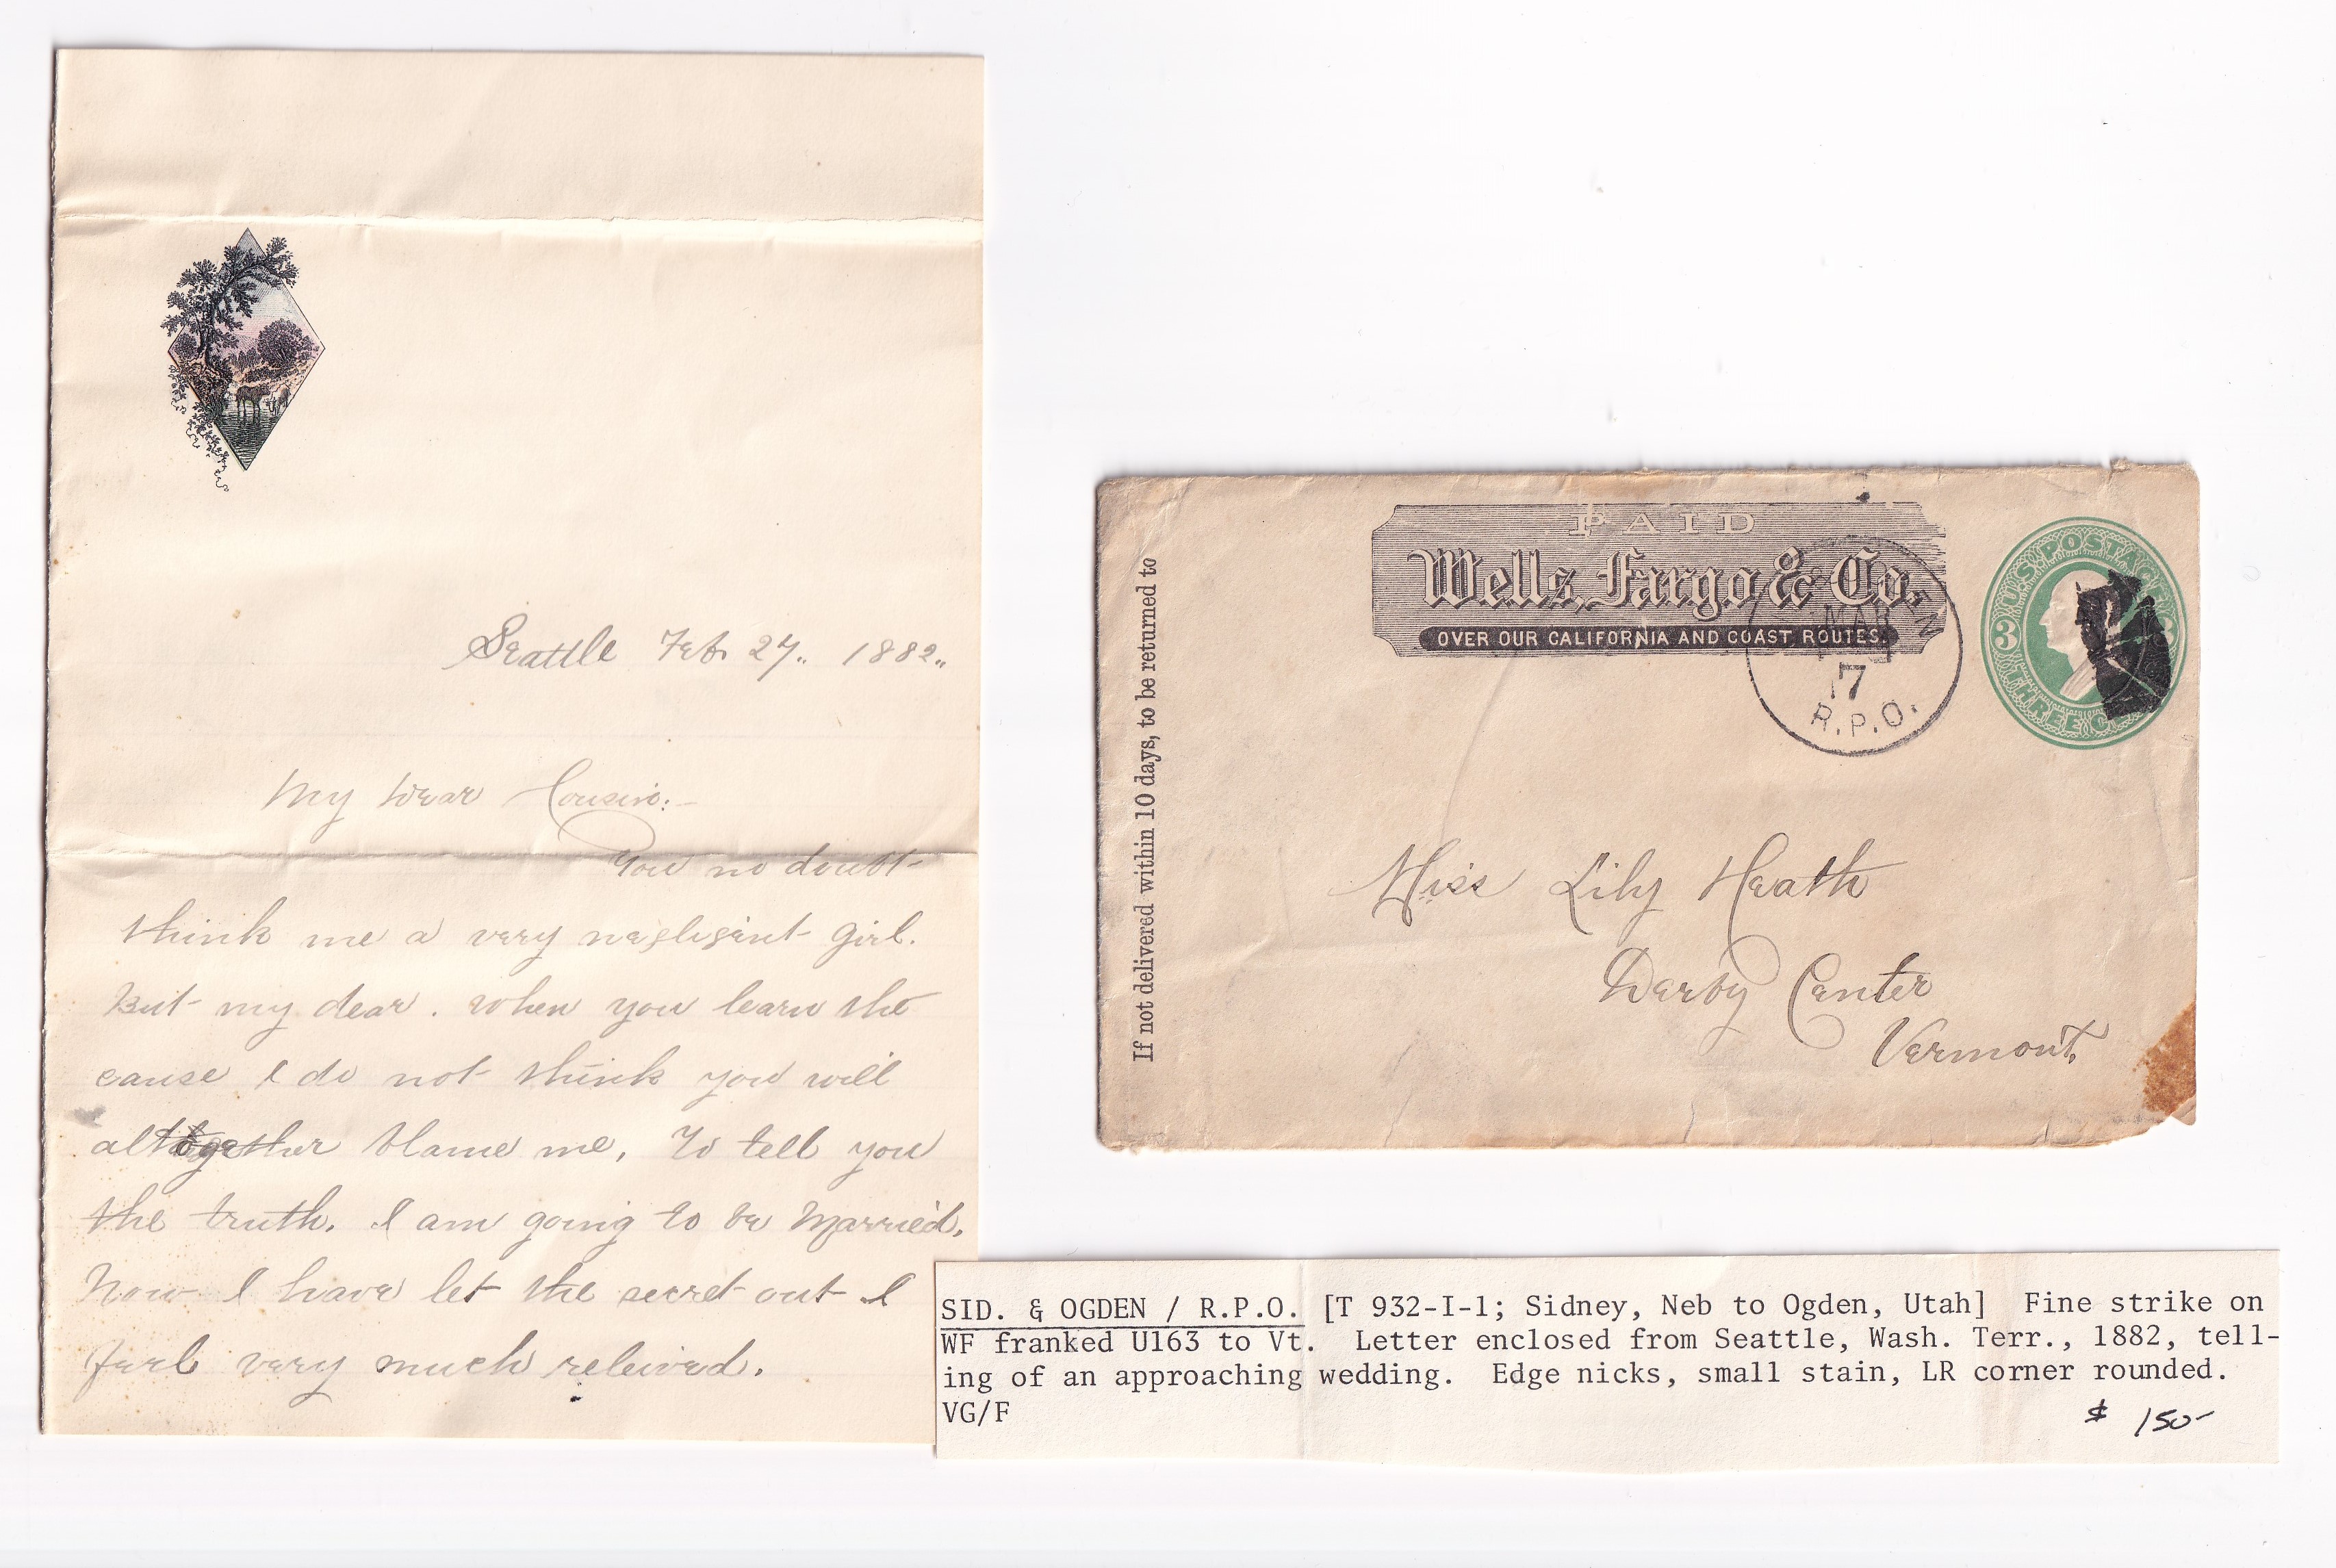 Seattle Feb. 27.. 1882..
My Dear Cousin:-
You no doubt
think me a very negligent girl.
But my dear. When you learn the
cause I do not think you will
altogether blame me, To tell you
the truth. I am going to be Married.
Now I have let the secret out I
feel very much releived.
PAID
Wells, Fargo & Co.
OVER OUR CALIFORNIA AND COAST ROUTES.
If not delivered within 10 days, to be returned to
MAR
7
R.P.O.
U.S. POSTAGE
3
THREE
Miss Lily Heath
Derby Center
Vermont.
SID. & OGDEN / R.P.O. [T 932-I-1; Sidney, Neb to Ogden, Utah] Fine strike on
WF franked U163 to Vt. Letter enclosed from Seattle, Wash. Terr., 1882, tell-
ing of an approaching wedding. Edge nicks, small stain, LR corner rounded.
VG/F
$ 150-